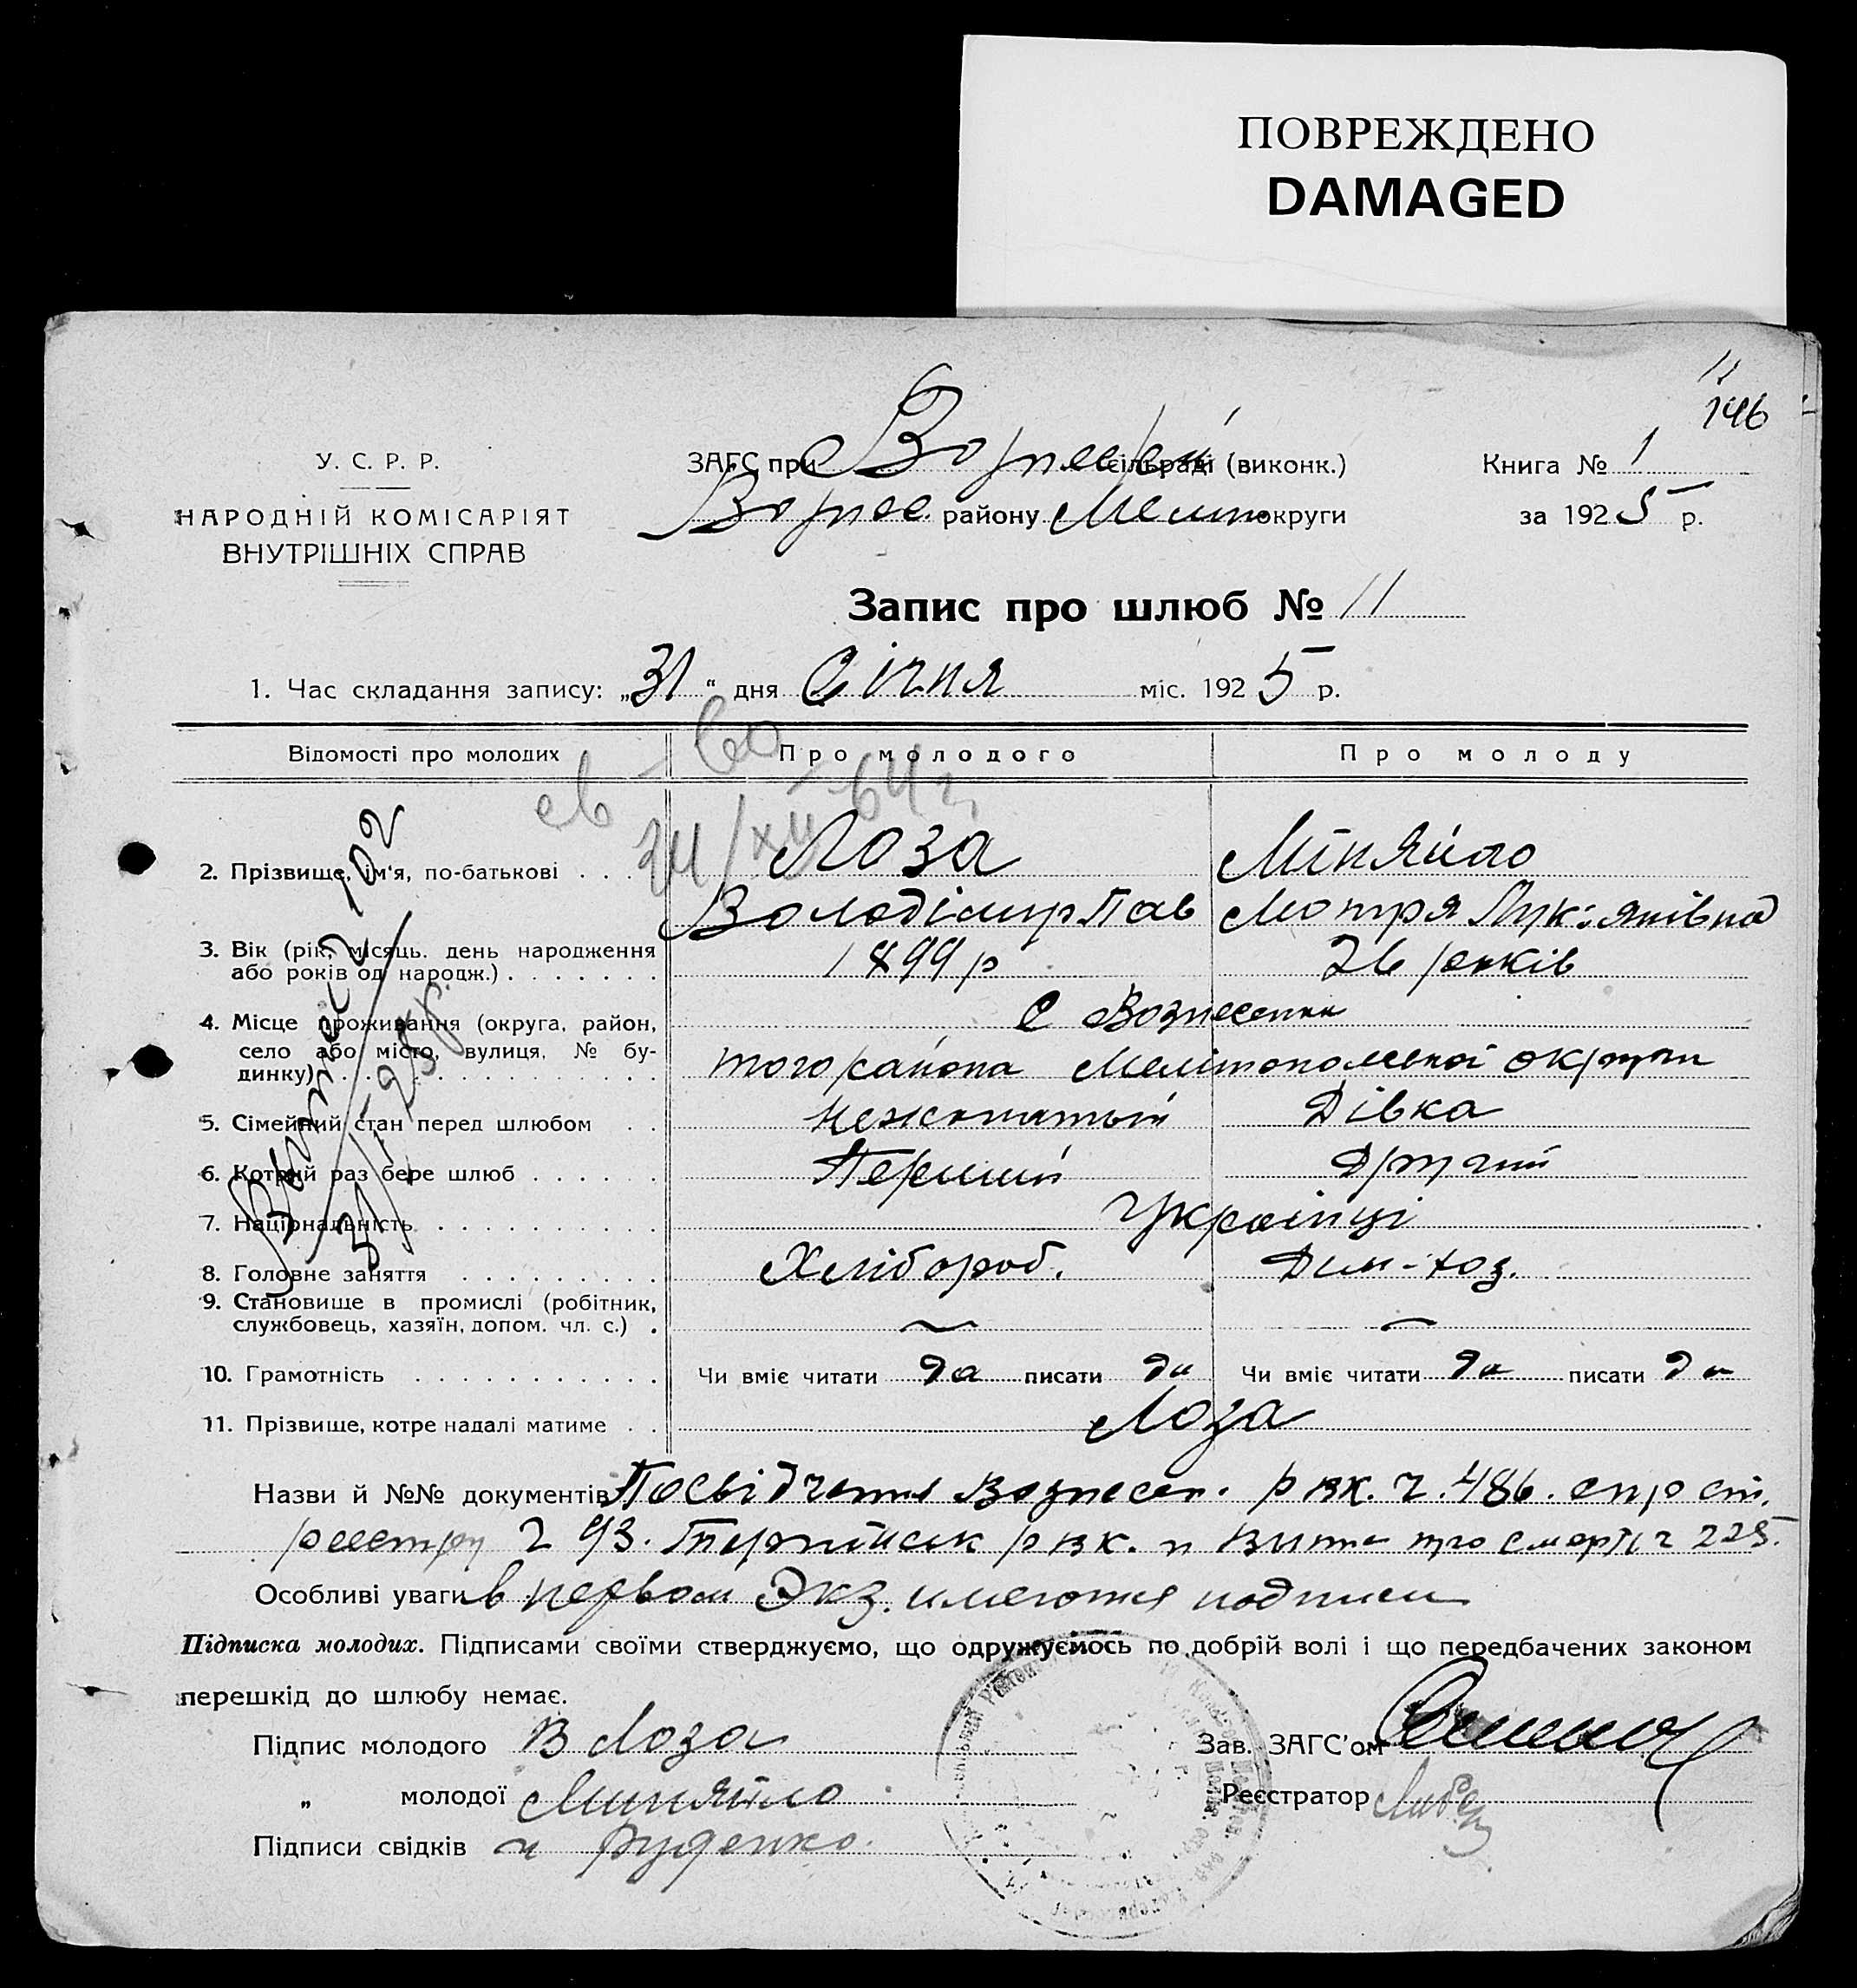 ПОВРЕЖДЕНО
DAMAGED
11
146
У. С. Р. Р.
НАРОДНІЙ КОМІСАРІЯТ
ВНУТРІШНІХ СПРАВ
ЗАГС при Вознесен сільраді (виконк.)
Вознес. району Меліт. округи
Книга № 1
за 1925 р.
Запис про шлюб № 11
1. Час складання запису: „31“ дня Січня міс. 1925 р.
Відомості про молодих Про молодого Про молоду
ев - во
24/XII-64 г.
2. Прізвище, ім'я, по-батькові . . . Лоза Міняйло
Володімир Пав Мотря Лук:янівна
3. Вік (рік, місяць, день народження
або років од народж.) . . . . . . . 1899 р 26 років
4. Місце проживання (округа, район,
село або місто, вулиця, № бу-
динку) . . . . . . . . . . . . . .
С Вознесенки
того района Мелітопольської округи
5. Сімейний стан перед шлюбом . . нежонатый Дівка
6. Котрий раз бере шлюб . . . . . . Перший Другий
7. Національність . . . . . . . . . . Українці
8. Головне заняття . . . . . . . . . Хлібороб. Дом-хоз.
9. Становище в промислі (робітник,
службовець, хазяїн, допом. чл. с.) .
10. Грамотність . . . . . . . . . . . Чи вміє читати да писати да Чи вміє читати да писати да
11. Прізвище, котре надалі матиме . . Лоза
Назви й №№ документів Посвідчення Вознесен. рвк. ч. 486.
реестру ч 93. рвк. и про смерть ч 225.
Особливі уваги в первом Экз. имеются подписи
Підписка молодих. Підписами своїми стверджуємо, що одружуємось по добрій волі і що передбачених законом
перешкід до шлюбу немає.
Підпис молодого В Лоза
Зав. ЗАГС'ом
„ молодої Миняйло
Реєстратор
Підписи свідків и Руденко